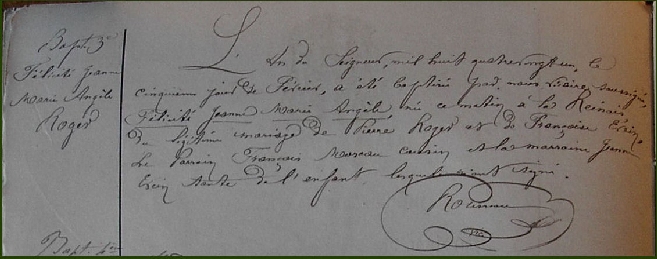 Bapt. 3e
Félicité Jeanne
Marie Angèle
Roger
L'An du Seigneur, mil huit quatrevingt un, le
cinquième jour de Février, a été baptisée par nous vicaire soussigné,
Félicité Jeanne Marie Angèle née ce matin à la
du légitime mariage de Pierre Roger et de Françoise
Le Parrain François Moreau cousin et la marraine Jeanne
tante de l'enfant lesquels n'ont signé.
Bapt. 4e